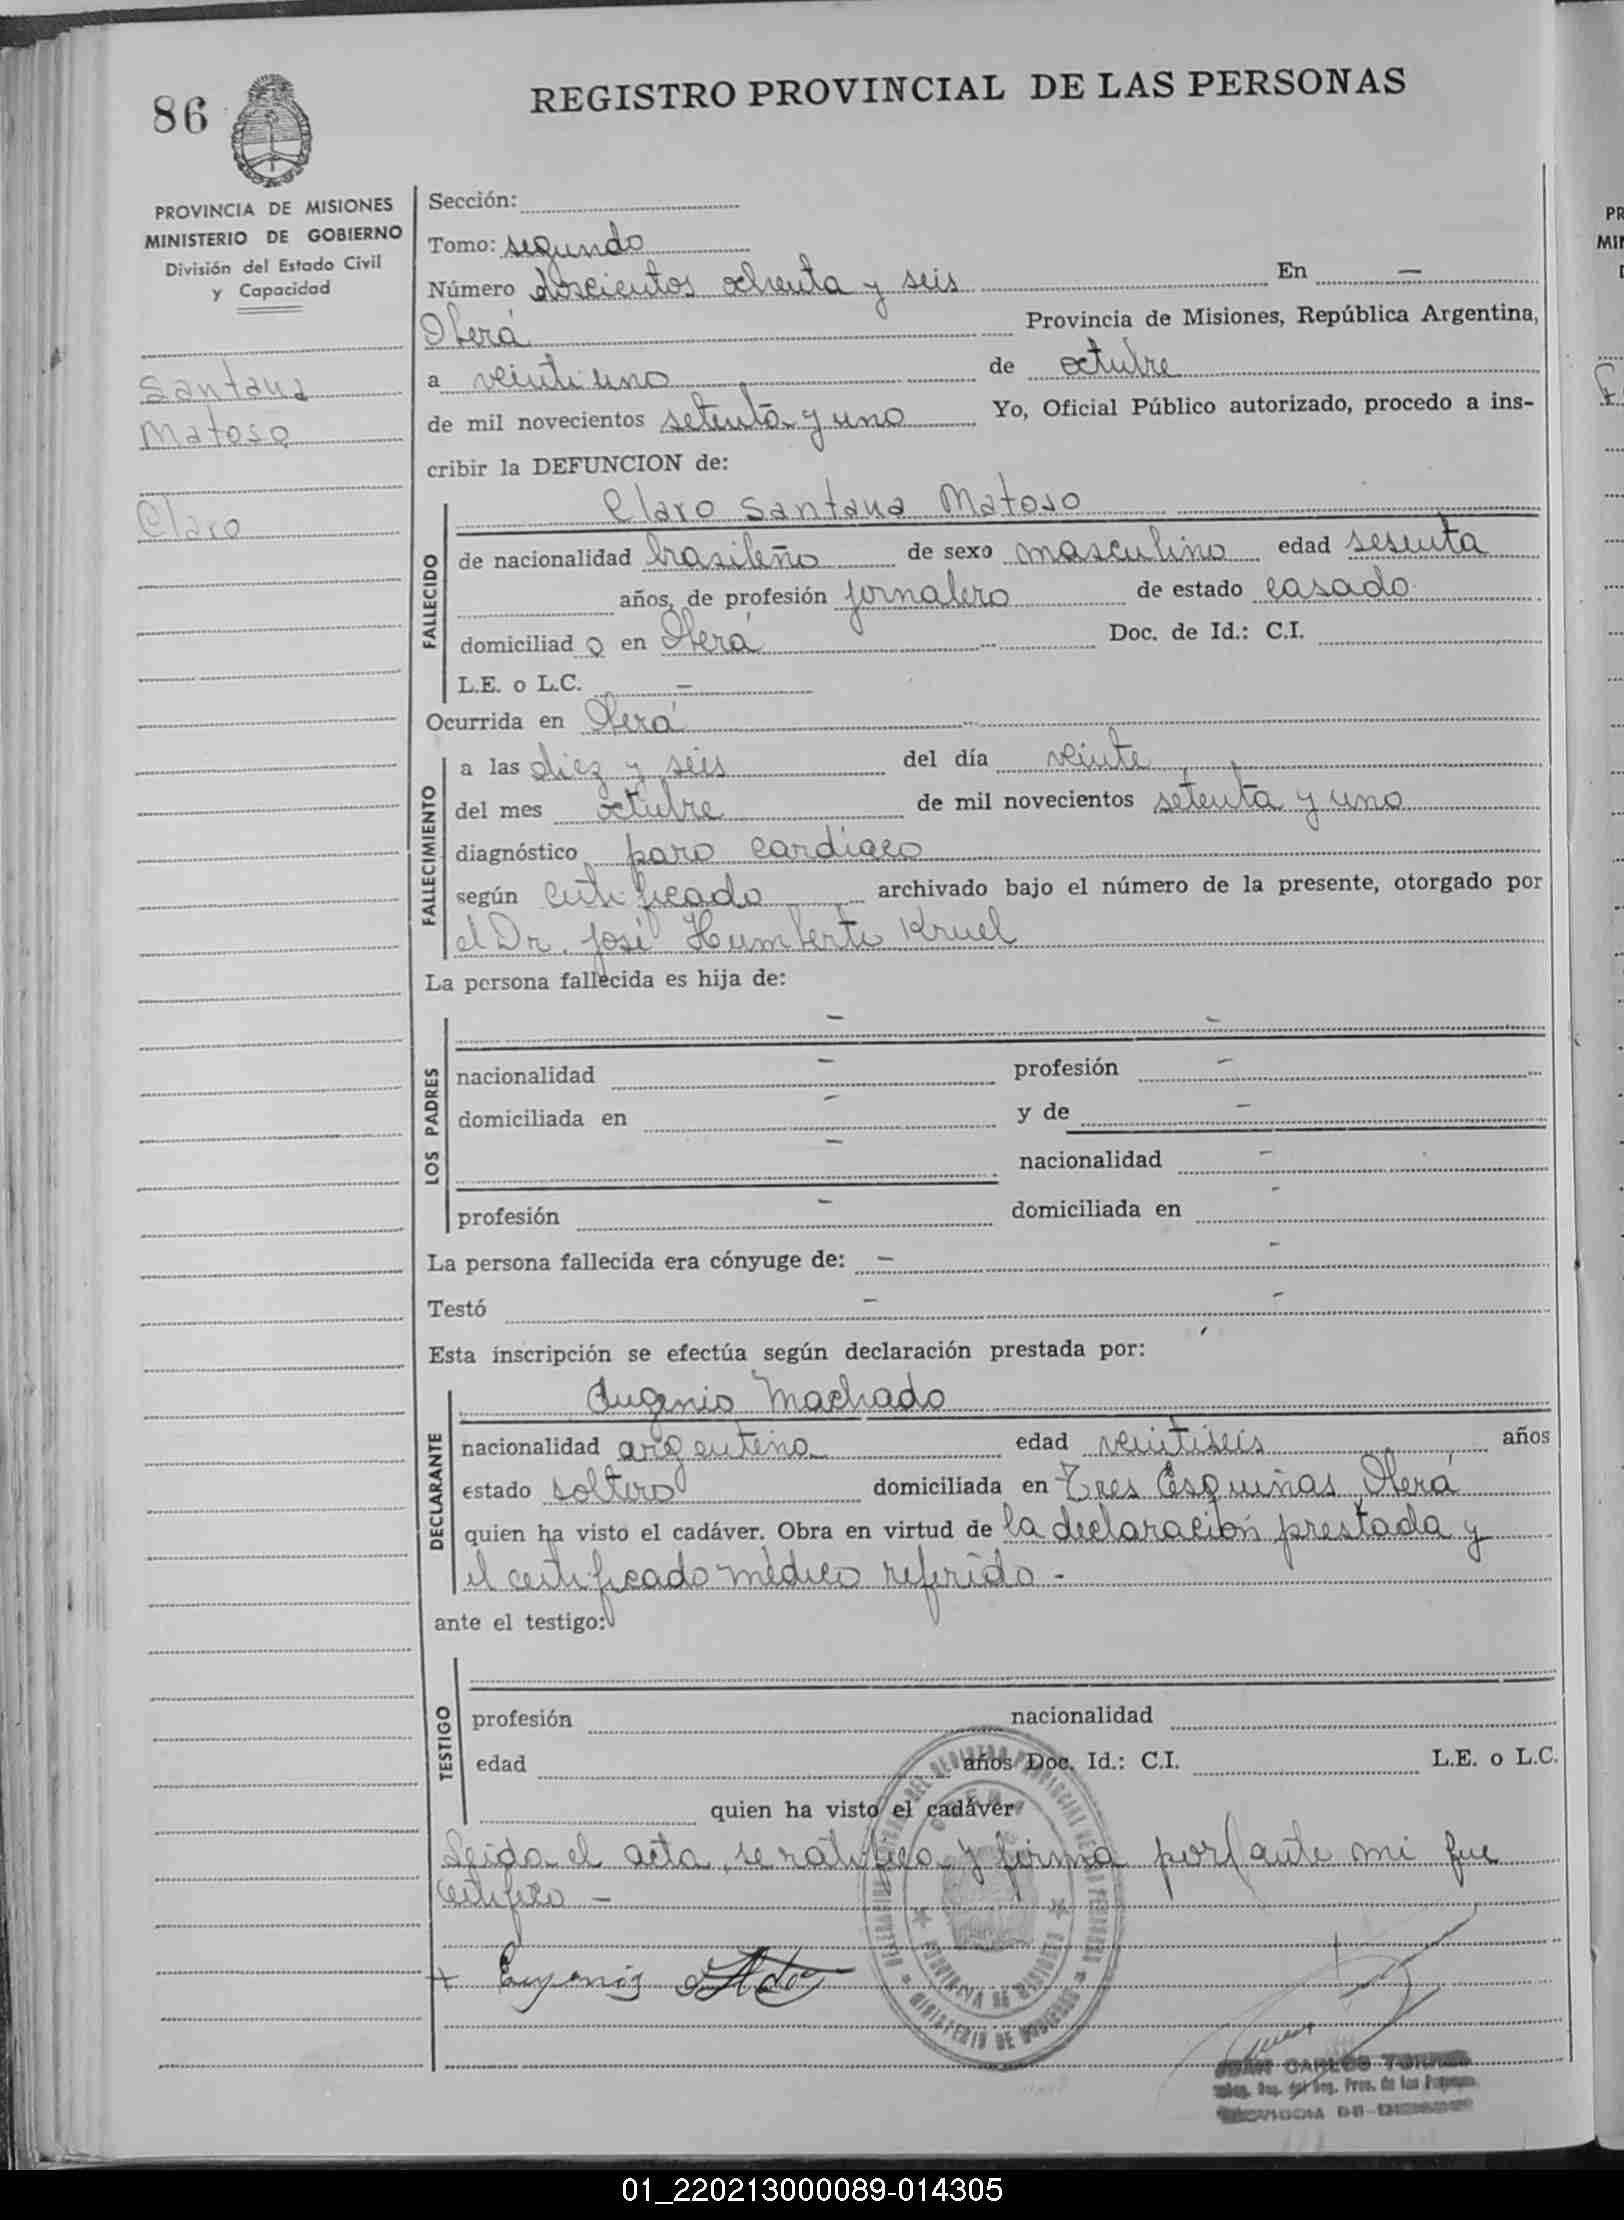 86
REGISTRO PROVINCIAL DE LAS PERSONAS
PROVINCIA DE MISIONES
MINISTERIO DE GOBIERNO
División del Estado Civil
y Capacidad
Santana
Matoso
Claro
Sección:
Tomo: segundo
Número doscientos ochenta y seis En —
Oberá Provincia de Misiones, República Argentina,
a veintiuno de octubre
de mil novecientos setenta y uno Yo, Oficial Público autorizado, procedo a ins-
cribir la DEFUNCION de:
FALLECIDO
Claro Santana Matoso
de nacionalidad brasileño de sexo masculino edad sesenta
años, de profesión jornalero de estado casado
domiciliad o en Oberá Doc. de Id.: C.I.
L.E. o L.C. —
Ocurrida en Oberá
FALLECIMIENTO
a las diez y seis del día veinte
del mes octubre de mil novecientos setenta y uno
diagnóstico paro cardiaco
según certificado archivado bajo el número de la presente, otorgado por
el Dr. José Humberto Kruel
La persona fallecida es hija de:
LOS PADRES
— —
nacionalidad — profesión —
domiciliada en — y de —
— nacionalidad —
profesión — domiciliada en —
La persona fallecida era cónyuge de: — —
Testó — —
Esta inscripción se efectúa según declaración prestada por:
DECLARANTE
Eugenio Machado
nacionalidad argentino edad veintiseis años
estado soltero domiciliada en Tres Esquinas Oberá
quien ha visto el cadáver. Obra en virtud de la declaración prestada y
el certificado médico referido -
ante el testigo:
TESTIGO
profesión nacionalidad
edad años Doc. Id.: C.I. L.E. o L.C.
quien ha visto el cadáver
Leida el acta, se ratifica y firma por ante mi que
certifico -
+ Eugenio
PROVINCIA DE MISIONES
MINISTERIO DE GOBIERNO
JUAN CARLOS TORRES
01_220213000089-014305